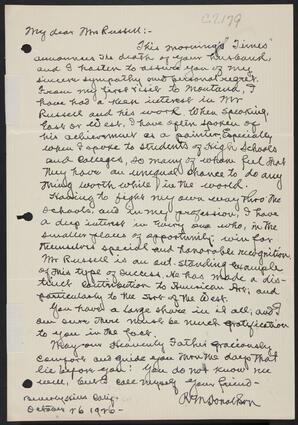 C.2179
My dear Mrs Russell:-
This morning's "Times"
announces the death of your husband,
and I hasten to assure you of my
sincere sympathy and personal regret.
From my first visit to Montana, I
have had a keen interest in Mr
Russell and his work. When speaking,
East or West, I have often spoken of
his achievement as a painter, Especially
when I spoke to students of High Schools
and Colleges, so many of whom feel that
they have an unequal chance to do any
thing worth while in the world.
Having to fight my own way thro the
schools, and in my profession, I have
a deep interest in every one who, in the
smaller places of opportunity, win for
themselves special and honorable recognition.
Mr Russell is an out-standing example
of this type of success. He has made a dis-
tinct contribution to American Art, and
particularly to the Art of the West.
You have a large share in it all, and I
am sure there must be much gratification
to you in the fact.
May our Heavenly Father graciously
comfort and guide you thro the days that
lie before you! You do not know me
well, but I call myself your friend-
R. M. Donaldson.
Beverly Hills Calif.
October 26 1926-